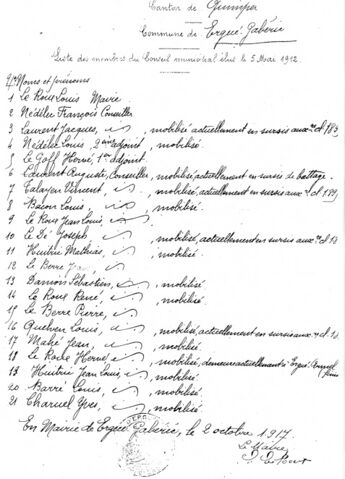 Canton de Quimper
Commune de Ergué-Gabéric
Liste des membres du Conseil municipal élus le 5 Mai 1912
Nos Noms et prénoms
1 Le Roux Louis Maire
2 Nédélec François Conseiller
3 Laurent Jacques, mobilisé, actuellement en sursis
4 Nédélec Louis 2ème adjoint, mobilisé.
5 Le Goff Hervé, 1er adjoint.
6 Laurent Auguste, Conseiller, mobilisé, actuellement en sursis de battage.
7 Vincent, mobilisé, actuellement en sursis
8 Louis, mobilisé.
9 Le Roux Jean Louis,
10 Le Dé Joseph, mobilisé, actuellement en sursis
11 Huitric Mathias, mobilisé.
12 Le Berre Jean
13 Sébastien, mobilisé.
14 Le Roux René, mobilisé.
15 Le Berre Pierre,
16 Louis, mobilisé, actuellement en sursis
17 Mahé Jean, mobilisé.
18 Le Roche Hervé, mobilisé, demeure actuellement à Ergué-Armel
19 Huitric Jean Louis, mobilisé.
20 Barré Louis, mobilisé.
21 Charuel Yves, mobilisé.
En Mairie de Ergué-Gabéric, le 2 octobre 1917
Le Maire